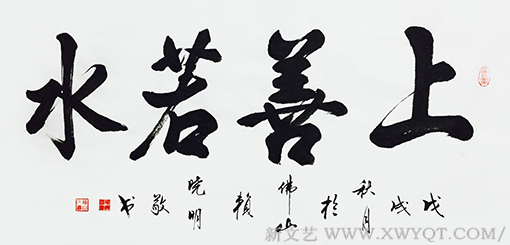 上善若水
戊戌秋月於佛山賴晓明敬书
新文艺 WWW.XWYQT.COM